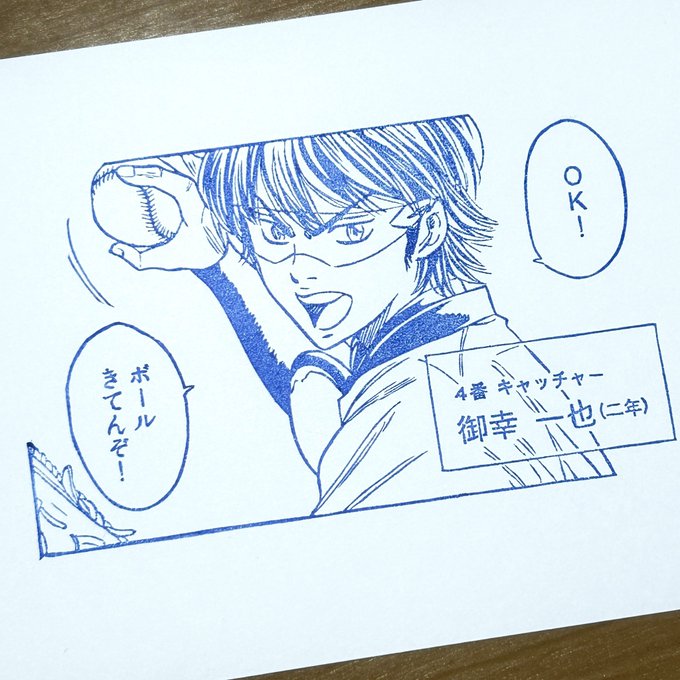 OK!
ボール
きてんぞ!
4番 キャッチャー
御幸 一也(二年)